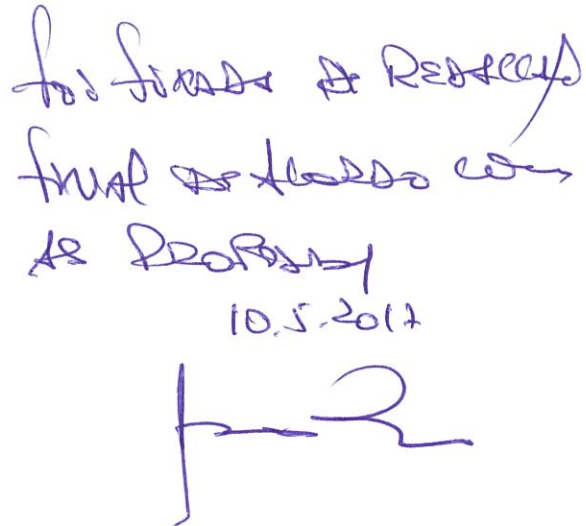 foi fixada a Redacção
final de acordo com
as propostas
10.5.2017